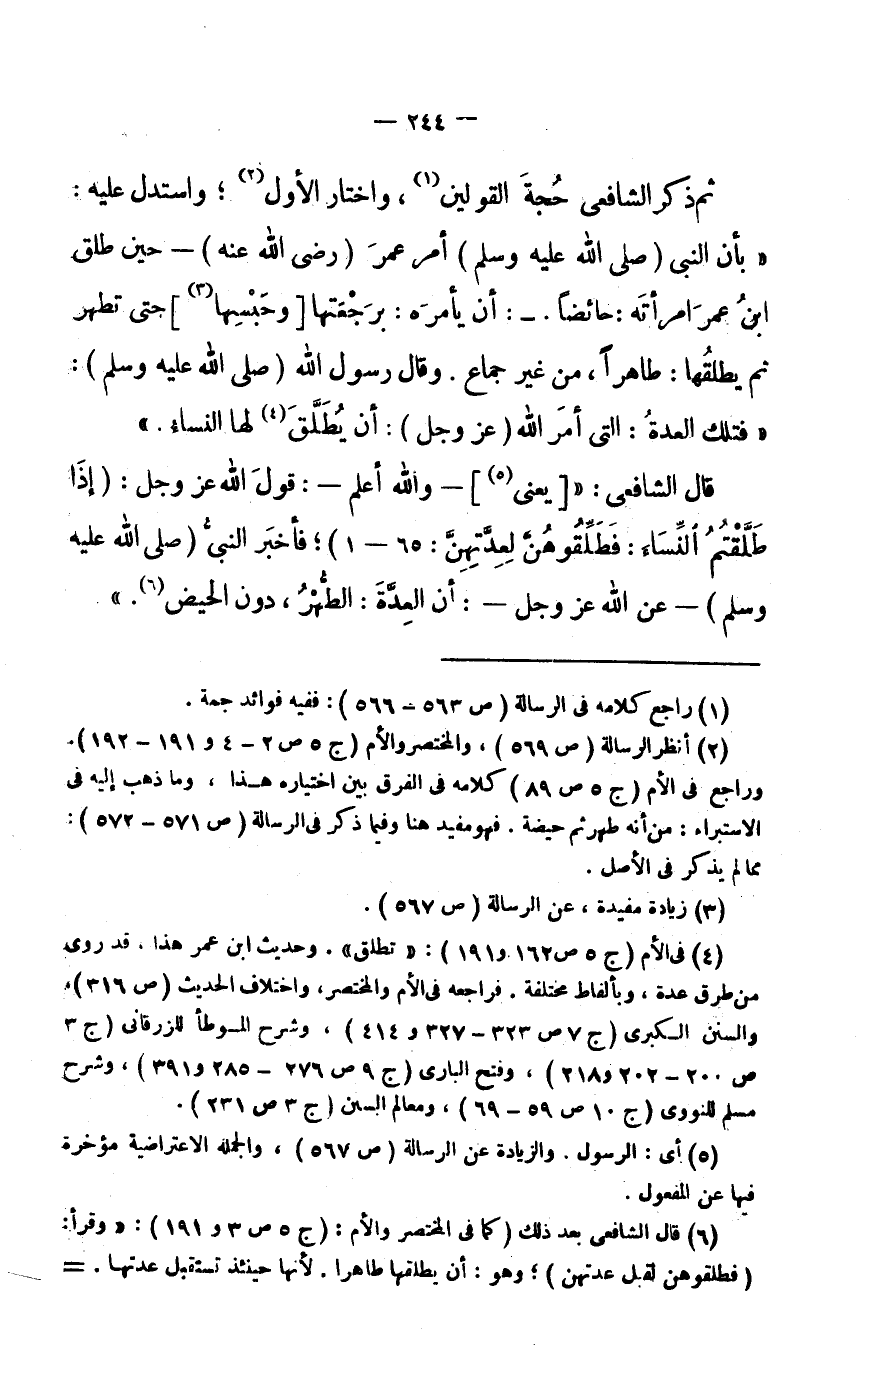 — ٢٤٤ —
ثم ذكر الشافعى حُجةَ القولين(١) ، واختار الأول(٢) ؛ واستدل عليه :
« بأن النبى (صلى الله عليه وسلم) أمر عمرَ (رضى الله عنه) — حين طلق
ابنُ عمرَ امرأتَه : حائضاً . — : أن يأمرَه : برَجْعَتها [ وحَبْسِها(٣) ] حتى تطهر
ثم يطلقُها : طاهراً ، من غير جماع . وقال رسول الله (صلى الله عليه وسلم) :
« فتلك العدةُ : التى أمرَ الله (عز وجل) : أن يُطَلَّقَ(٤) لها النساء . »
قال الشافعى : « [ يعنى(٥) ] — والله أعلم — : قولَ الله عز وجل : (إِذَا
طَلَّقْتُمُ ٱلنِّسَاءَ : فَطَلِّقُوهُنَّ لِعِدَّتِهِنَّ : ٦٥ — ١) ؛ فأخبَر النبىُّ (صلى الله عليه
وسلم) — عن الله عز وجل — : أن العِدَّةَ : الطُّهْرُ ، دون الحيض(٦) . »
(١) راجع كلامه فى الرسالة (ص ٥٦٣ – ٥٦٦) : ففيه فوائد جمة .
(٢) أنظر الرسالة (ص ٥٦٩) ، والمختصر والأم (ج ٥ ص ٢ – ٤ و ١٩١ – ١٩٢).
وراجع فى الأم (ج ٥ ص ٨٩) كلامه فى الفرق بين اختياره هذا ، وما ذهب إليه فى
الاستبراء : من أنه طهر ثم حيضة . فهو مفيد هنا وفيما ذكر فى الرسالة (ص ٥٧١ – ٥٧٢) :
مما لم يذكر فى الأصل .
(٣) زيادة مفيدة ، عن الرسالة (ص ٥٦٧) .
(٤) فى الأم (ج ٥ ص ١٦٢ و ١٩١) : « تطلق» . وحديث ابن عمر هذا ، قد روى
من طرق عدة ، وبألفاط مختلفة . فراجعه فى الأم والمختصر، واختلاف الحديث (ص ٣١٦)،
والسنن الكبرى (ج ٧ ص ٣٢٣ – ٣٢٧ و ٤١٤) ، وشرح الموطأ للزرقانى (ج ٣
ص ٢٠٠ – ٢٠٢ و ٢١٨) ، وفتح البارى (ج ٩ ص ٢٧٦ – ٢٨٥ و ٣٩١) ، وشرح
مسلم للنووى (ج ١٠ ص ٥٩ – ٦٩) ، ومعالم السنن (ج ٣ ص ٢٣١) .
(٥) أى : الرسول . والزيادة عن الرسالة (ص ٥٦٧) ، والجملة الاعتراضية مؤخرة
فيها عن المفعول .
(٦) قال الشافعى بعد ذلك (كما فى المختصر والأم : (ج ٥ ص ٣ و ١٩١) : « وقرأ:
(فطلقوهن لقبل عدتهن) ؛ وهو : أن يطلقها طاهرا . لأنها حينئذ تستقبل عدتها . =